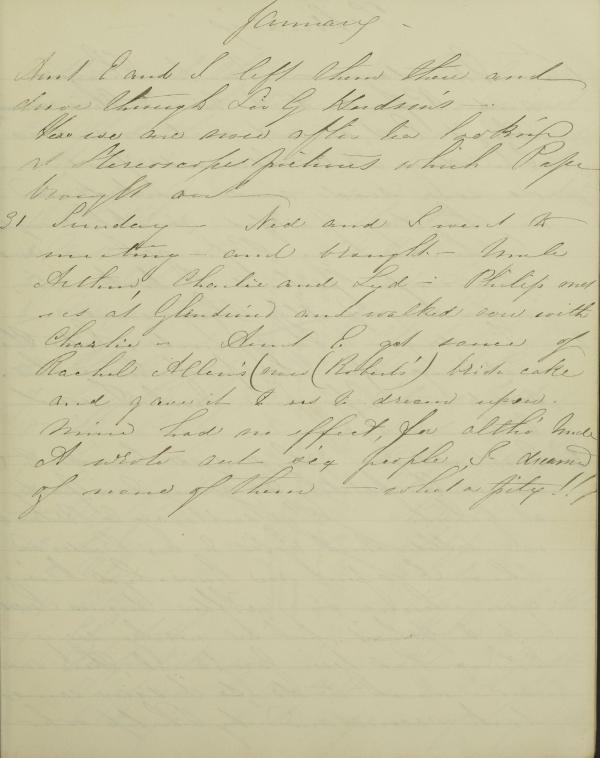 January -
Aunt E and I left them there and
drove through Geo G Hudson's -
Here we are now after tea looking
at Stereoscope pictures which Papa
brought out
31 Sunday - Ned and I went to
meeting - and brought - Uncle
Arthur, Charlie and Lyd - Philip met
us at and walked on with
Charlie - Aunt E. got some of
Rachel Allen's (now (Roberts') bride cake
and gave it to us to dream upon.
Mine had no effect, for altho' Uncle
A wrote out six people, I dreamed
of none of them - what a pity!!